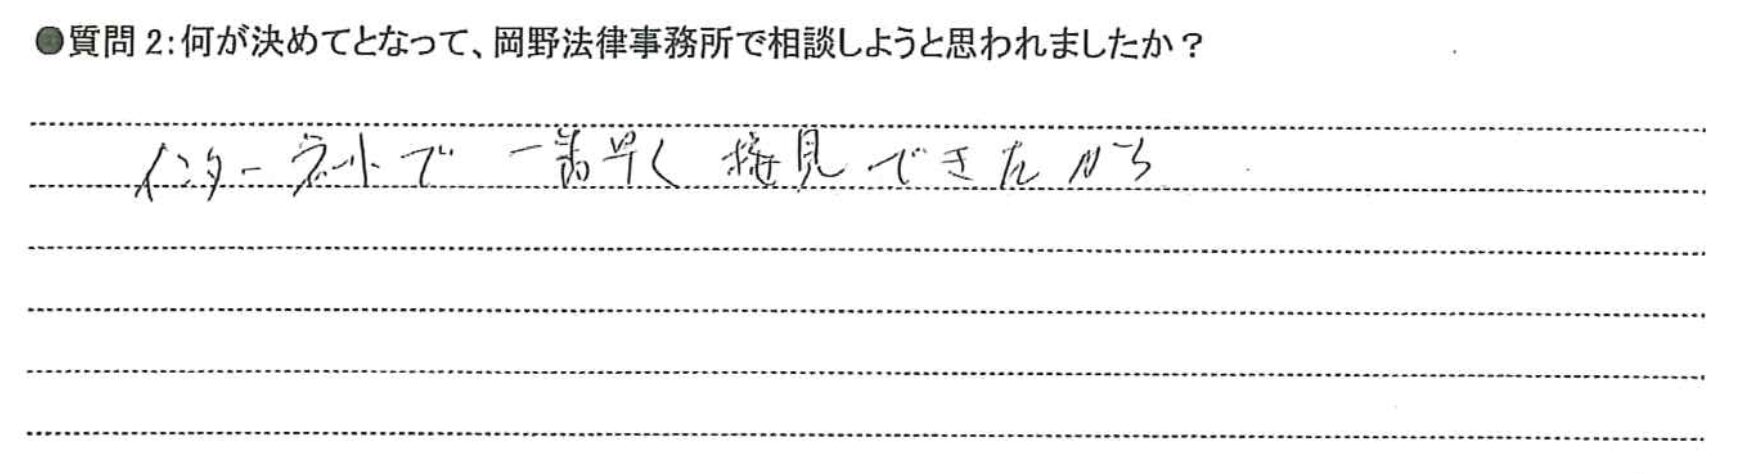 ●質問2:何が決めてとなって、岡野法律事務所で相談しようと思われましたか?
インターネットで 一番早く 接見できたから